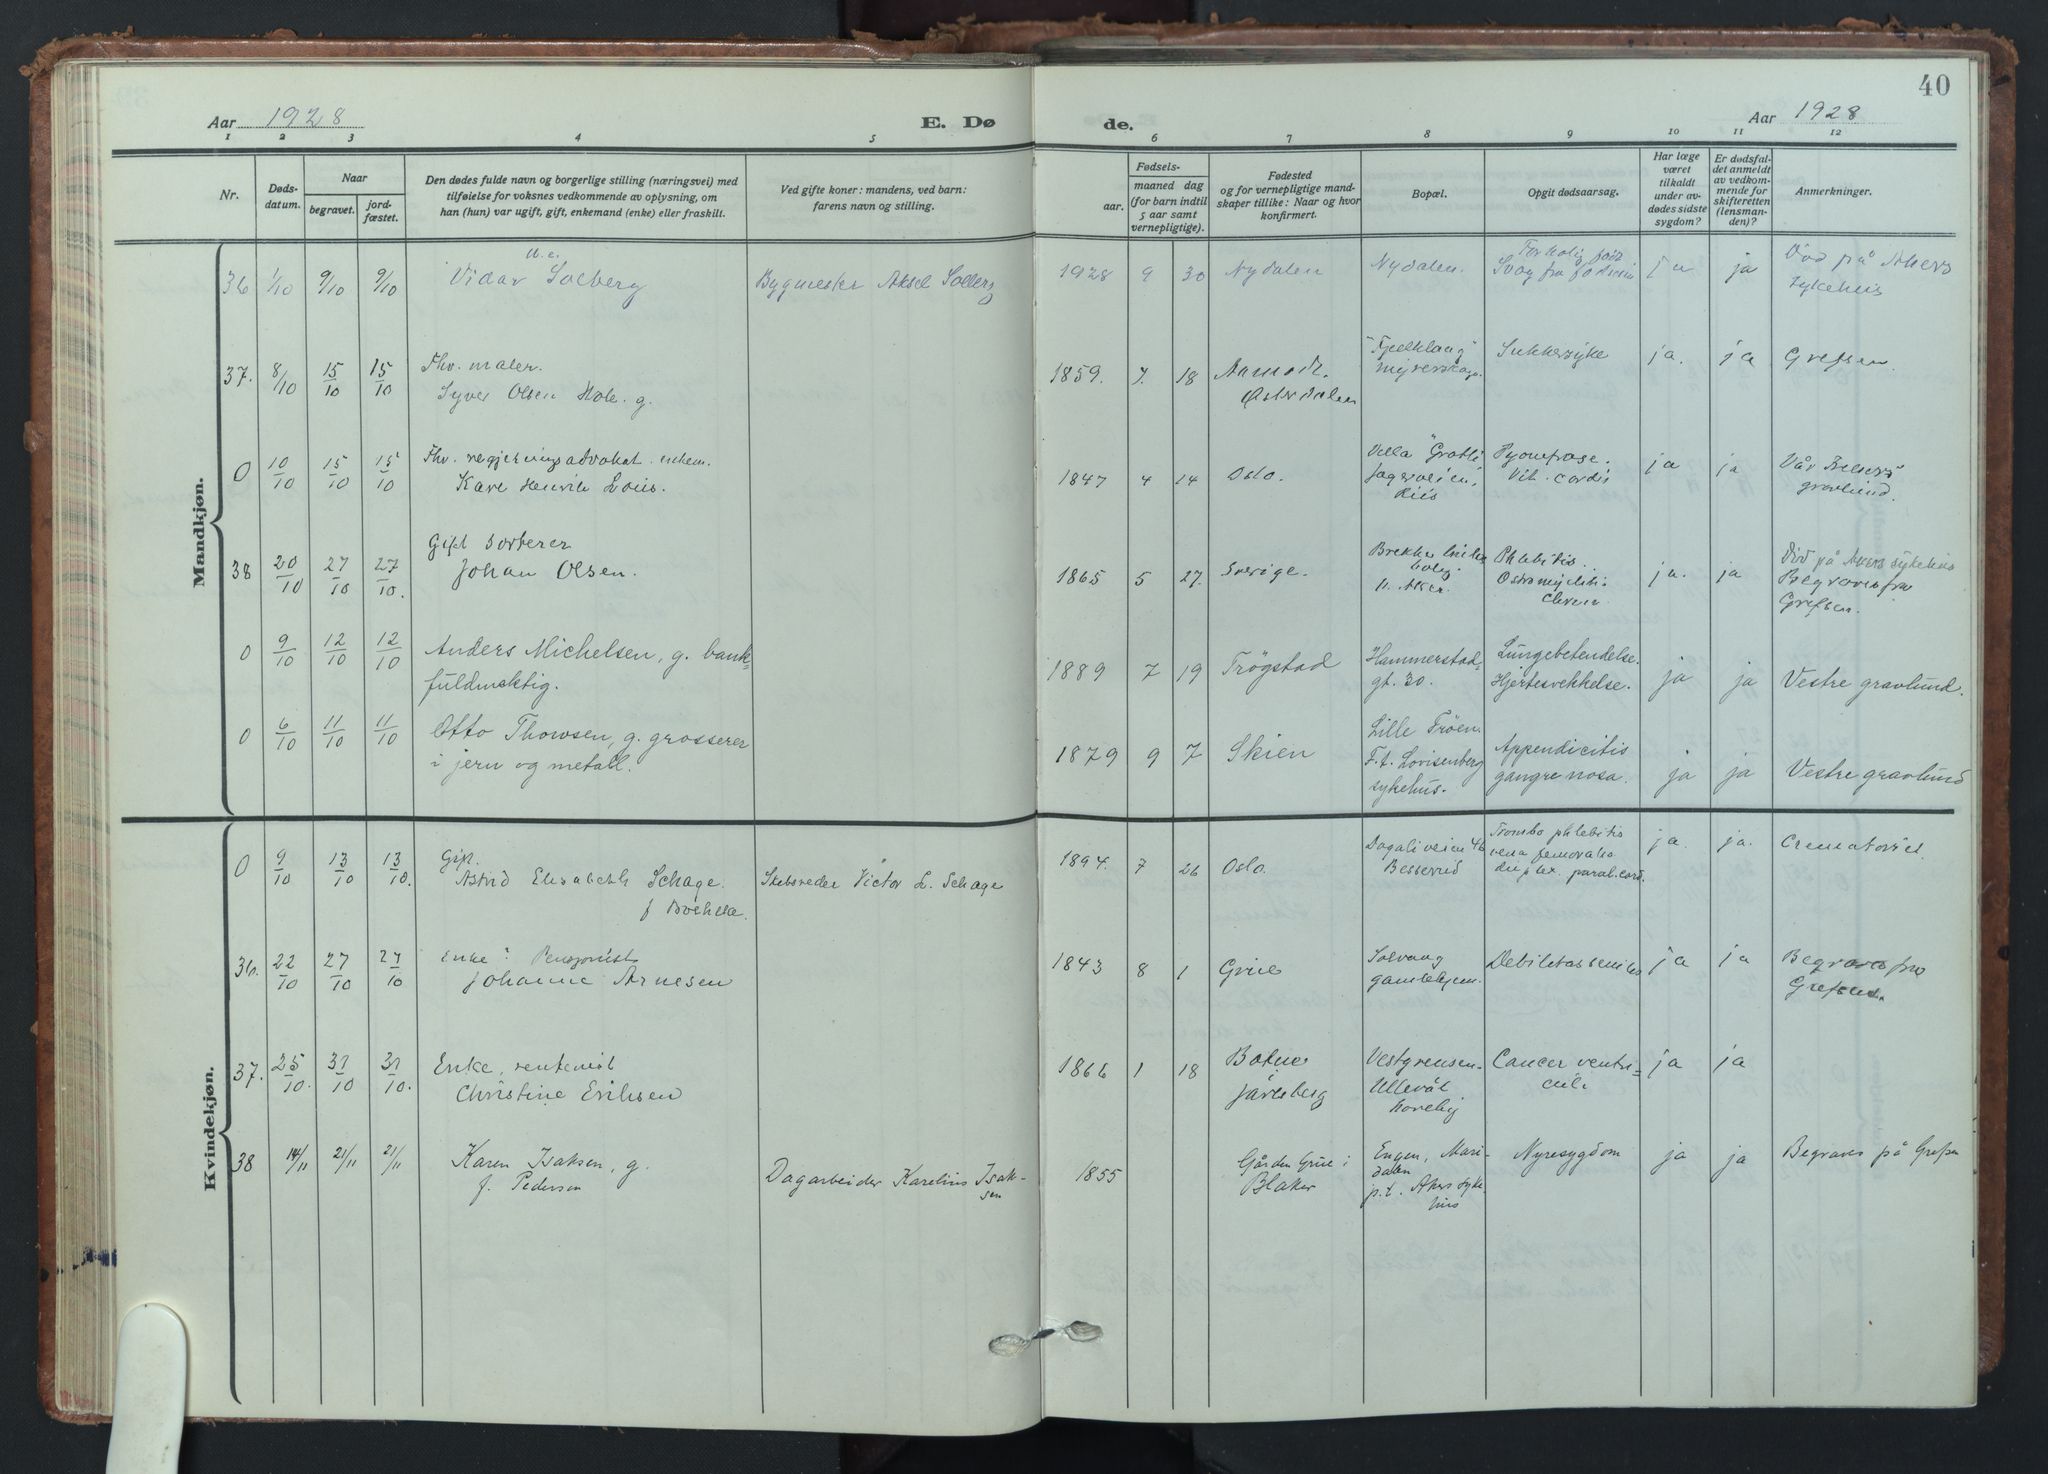 40
Aar 1928
E. Dø de.
Aar 1928
1 2 3 4 5 6 7 8 9 10 11 12
Nr.
Døds-
datum.
Naar
begravet.
jord-
fæstet.
Den dødes fulde navn og borgerlige stilling (næringsvei) med
tilføielse for voksnes vedkommende av oplysning, om
han (hun) var ugift, gift, enkemand (enke) eller fraskilt.
Ved gifte koner: mandens, ved barn:
farens navn og stilling.
Fødsels-
aar.
maaned dag
(for barn indtil
5 aar samt
vernepligtige).
Fødested
og for vernepligtige mand-
skaper tillike: Naar og hvor
konfirmert.
Bopæl.
Opgit dødsaarsag.
Har læge
været
tilkaldt
under av-
dødes sidste
sygdom?
Er dødsfal-
det anmeldt
av vedkom-
mende for
skifteretten
(lensman-
den)?
Anmerkninger.
Mandkjøn.
36 1/10 9/10 9/10
Vidar Solberg
Bygmester Aksel Solberg
1928 9 30 Nydalen
Nydalen.
ja ja
Død på Akers
Sykehus
37. 8/10 15/10 15/10
Fhv. maler.
Syver Olsen Hole. g.
1859. 7. 18
Østerdalen
Sukkersyke
ja. ja Grefsen.
0 10/10 15/10 15/10
Fhv. regjeringsadvokat. enkem.
Karl Henrik
1847 4 14 Oslo.
Villa "Grotli"
Vit. cordis
ja ja
Vår Frelsers
gravlund.
38 20/10 27/10 27/10.
Gift Sorterer
Johan Olsen.
1865 5 27. Sverige.
N. Aker.
Phlebitis.
ja. ja
Død på Akers sykehus
Begraves fra
Grefsen.
0 9/10 12/10 12/10
Anders Michelsen, g. bank-
fuldmektig.
1889 7 19 Trøgstad
Hammerstad-
gt. 30.
Lungebetendelse.
Hjertesvekkelse.
ja ja Vestre gravlund.
0 6/10 11/10 11/10
Otto Thowsen, g. grosserer
i jern og metall.
1879 9 7 Skien
Lille Frøen.
F.t. Lovisenberg
sykehus.
Appendicitis
gangrenosa.
ja ja Vestre gravlund
Kvindekjøn.
0 9/10 13/10 13/10.
Gift.
Astrid Elisabeth Schage.
Skibsreder Victor L. Schage
1894. 7 26 Oslo.
Dagaliveien 46
Besserud
Trombo phlebitis
vena femoralis
duplex. paral. cord.
ja. ja. Crematoriet.
36. 22/10 27/10 27/10
Enke: Pensjonist
Johanne Arnesen
1843 8 1 Grue
Solvang
gamlehjem.
Debilitas senilis
ja ja
Begraves fra
Grefsen.
37. 25/10. 31/10 31/10.
Enke, rentenist
Christine Eriksen
1866 1 18
Botne
Jarlsberg
Vestgrensen-
Ullevål
haveby
Cancer ventri-
culi
ja ja
38 14/11 21/11 21/11
Karen Isaksen, g.
f. Pedersen
Dagarbeider Karelius Isak-
sen
1855
Gården Grue i
Blaker
Engen, Mari-
dalen
p.t. Akers syke-
hus
Nyresygdom
ja ja Begraves på Grefsen